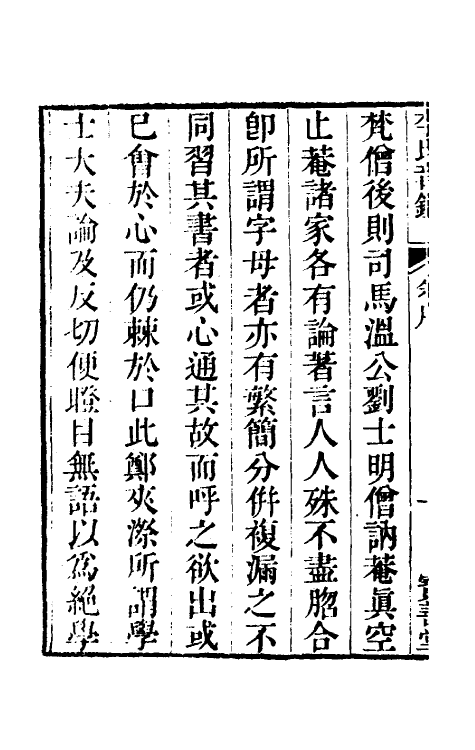 李氏音鑑
序
一
寶善堂
梵僧後則司馬溫公劉士明僧訥菴眞空
止菴諸家各有論著言人人殊不盡脗合
卽所謂字母者亦有繁簡分倂複漏之不
同習其書者或心通其故而呼之欲出或
已會於心而仍棘於口此鄭夾漈所謂學
士大夫論及反切便瞪目無語以爲絕學